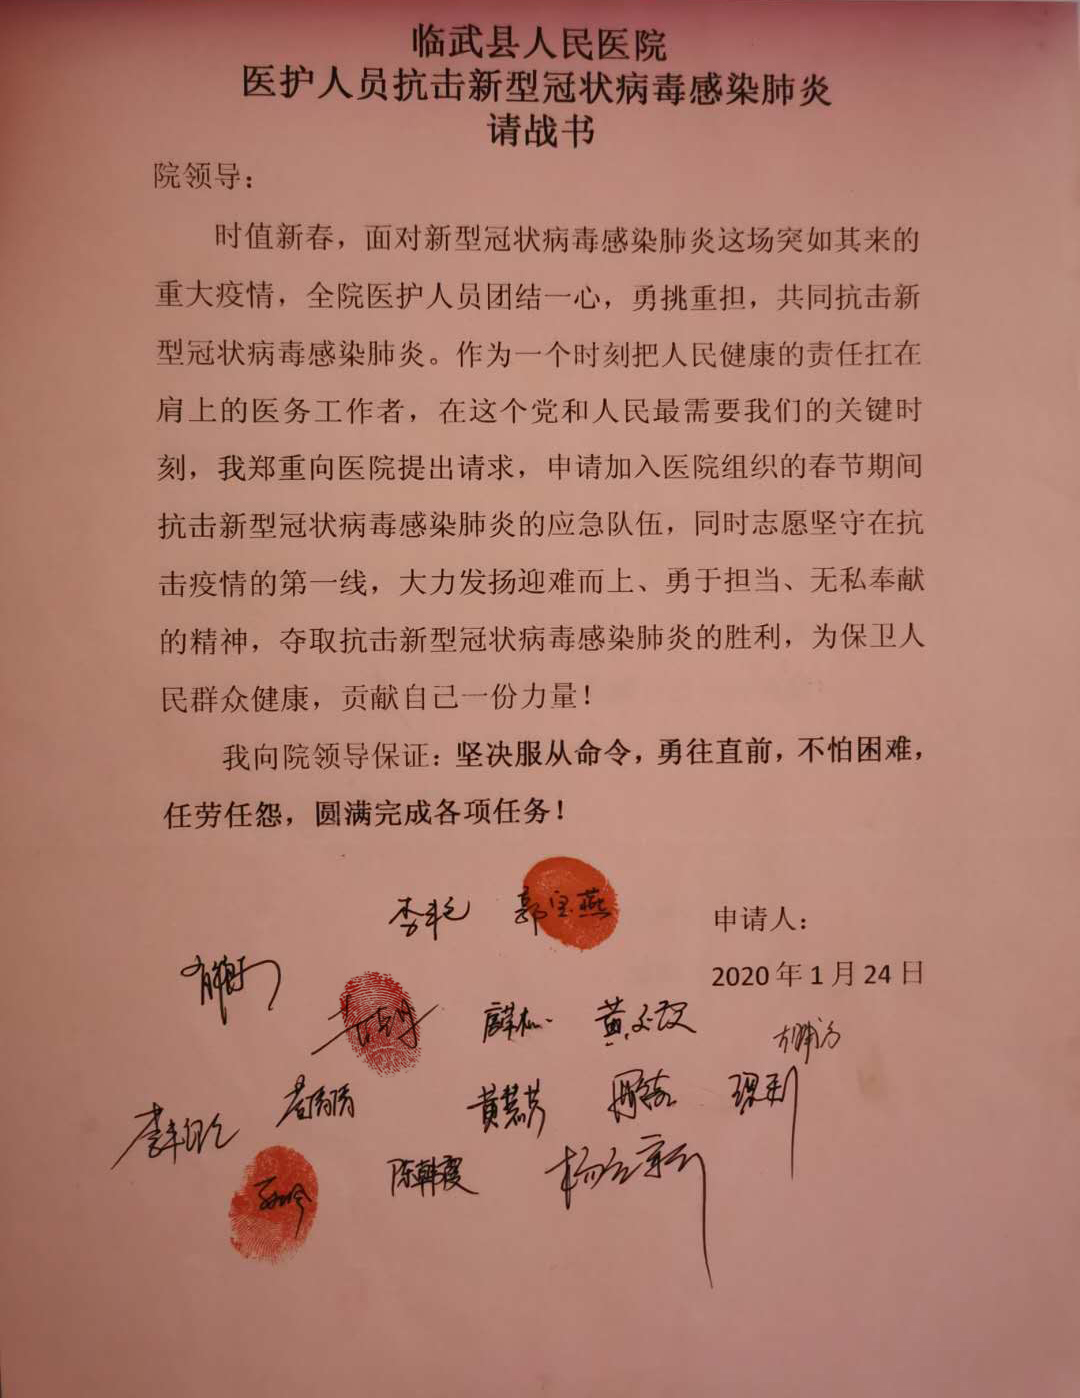 临武县人民医院
医护人员抗击新型冠状病毒感染肺炎
请战书
院领导：
时值新春，面对新型冠状病毒感染肺炎这场突如其来的
重大疫情，全院医护人员团结一心，勇挑重担，共同抗击新
型冠状病毒感染肺炎。作为一个时刻把人民健康的责任扛在
肩上的医务工作者，在这个党和人民最需要我们的关键时
刻，我郑重向医院提出请求，申请加入医院组织的春节期间
抗击新型冠状病毒感染肺炎的应急队伍，同时志愿坚守在抗
击疫情的第一线，大力发扬迎难而上、勇于担当、无私奉献
的精神，夺取抗击新型冠状病毒感染肺炎的胜利，为保卫人
民群众健康，贡献自己一份力量！
我向院领导保证：坚决服从命令，勇往直前，不怕困难，
任劳任怨，圆满完成各项任务！
郭宝燕
申请人：
2020 年 1 月 24 日
黄慧芳
陈韩霞